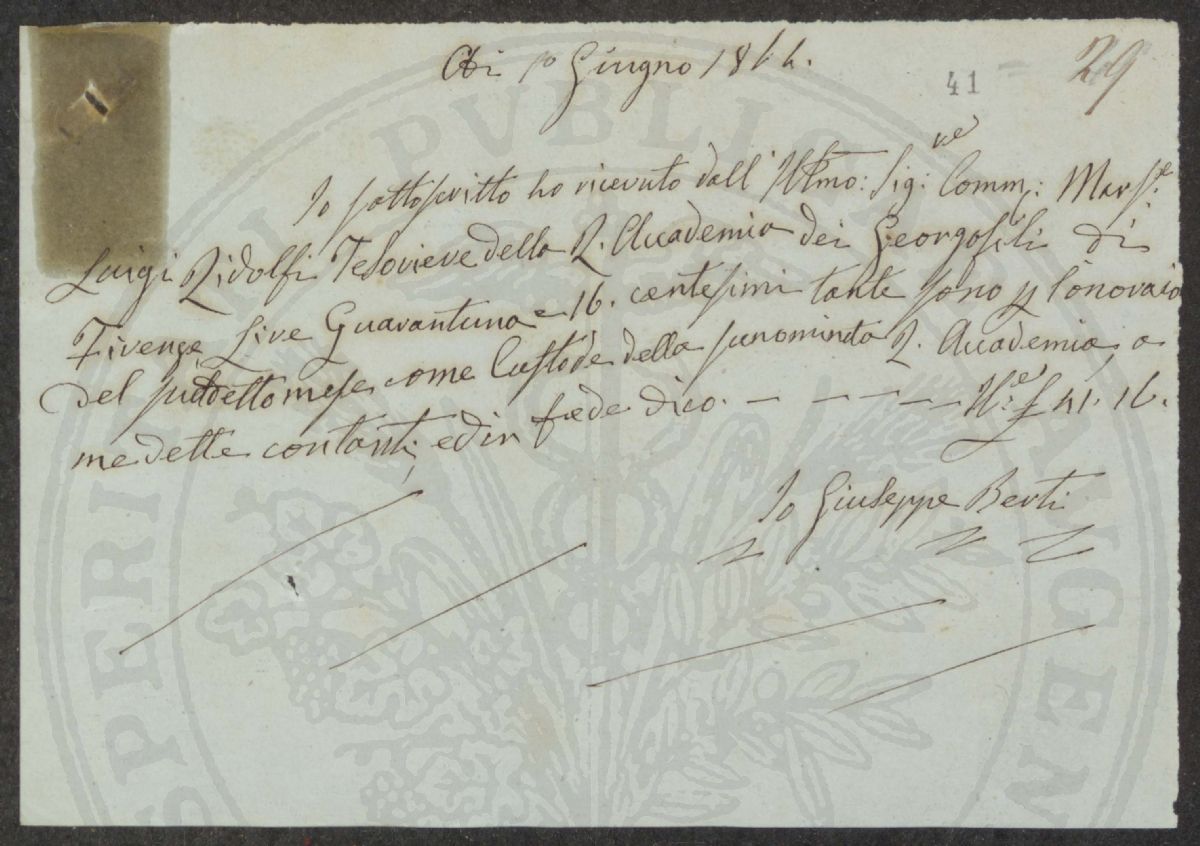 Adi po Giugno 1866.
41
29
Io sottoscritto ho ricevuto dall' Illmo: Sig:re Comm: March:
Luigi Ridolfi Tesoriere della R. Accademia dei Georgofili di
Firenze Lire Quarantuna e 16. centesimi tante sono p l'onoraio
del suddetto mese come Custode della sunominata R. Accademia, a
me dette contanti, ed in fede dico. — — — — £ 41. 16.
Io Giuseppe Berti
PUBLICAE